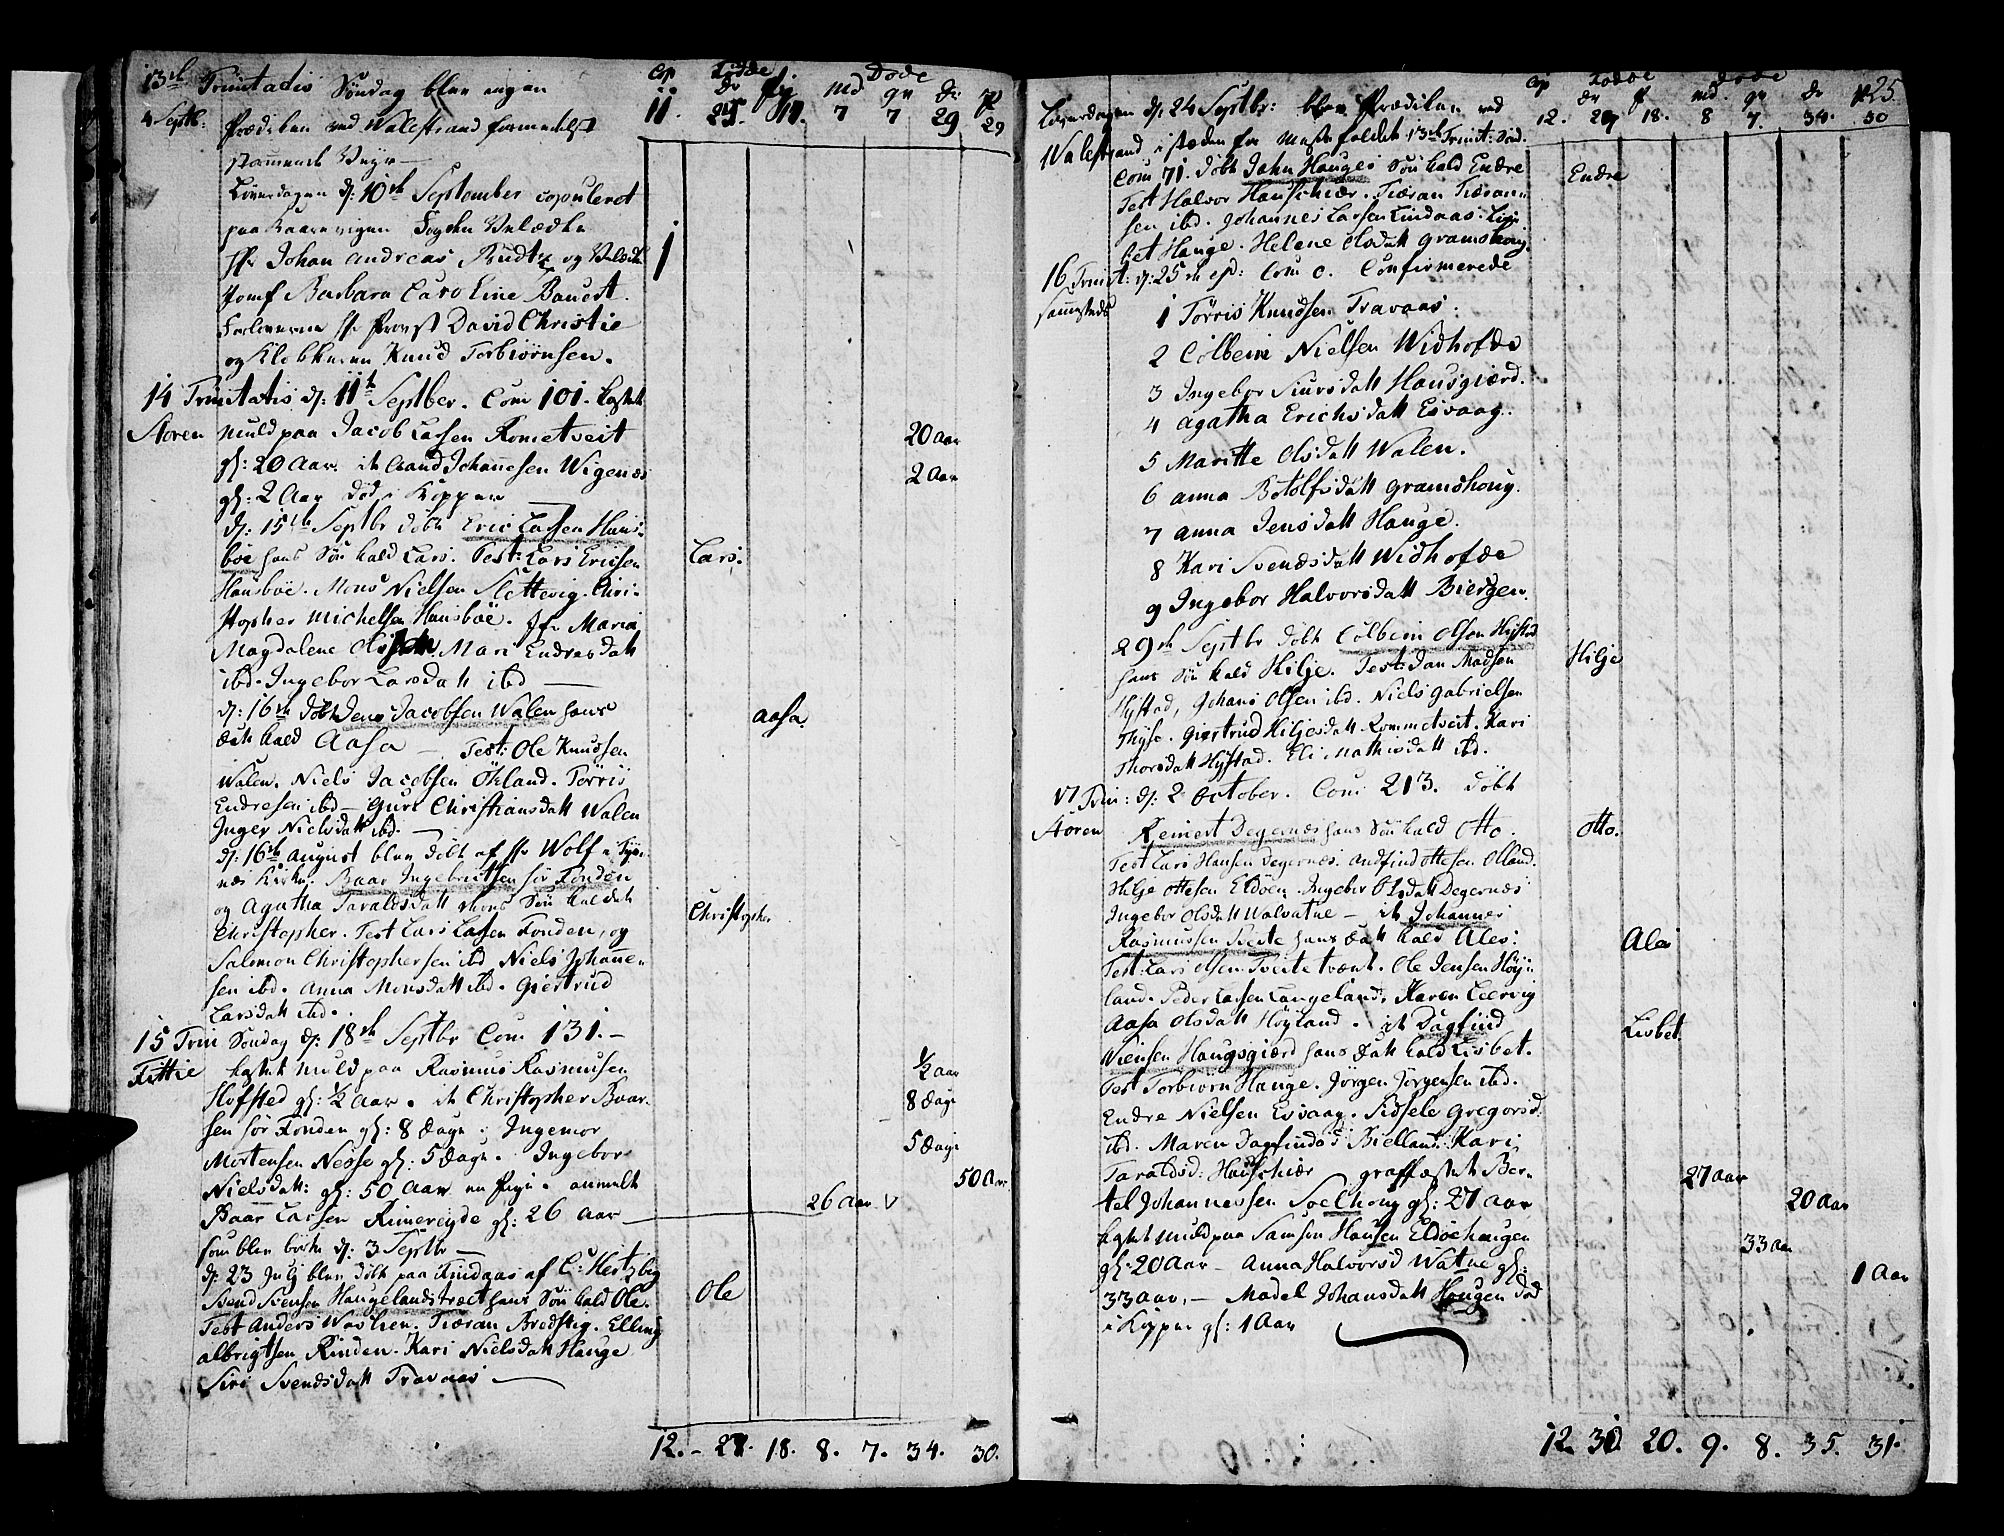 13de Trinitatis Søndag blev ingen
4 Septb: Prædiken ved Walestrand formedelst
stormende Veyr
Løverdagen d: 10de September copuleret
paa
Hr Johan Andreas Budtz og
Jomf Barbara Caroline Bauert.
Forloverne Hr Provst David Christie
og Klokkeren Knud Torbiørnsen.
14 Trinitatis d: 11te Septber. Com 101. Kastet
Storen Muld paa Jacob Larsen Rometveit
gl: 20 Aar. it Johannesen Wigenæs
gl: 2 Aar død i Kopper
d: 15de Septbr døbt Eric Larsen Huus-
bøe hans Søn kald Lars. Test: Lars Ericsen
Huusbøe. Mons Nielsen Slettevig. Chri-
stopher Michelsen Huusbøe. Jfr Maria
Magdalene Mari Endresdatt
ibd. Ingebor Larsdatt ibd
d: 16de døbt Jens Jacobsen Walen hans
Datt kald Aasa - Test: Ole Knudsen
Walen. Niels Jacobsen Økland. Tørris
Endresen ibd - Guri Christiansdatt Walen
Inger Nielsdatt ibd.
d: 16de August blev døbt af Hr Wolf i Tys-
næs Kirke. Baar Ingebrictsen Sør Fonden
og Agatha Taraldsdatt Søn kaldet
Christopher. Test Lars Larsen Fonden, og
Salomon Christophersen ibd Niels Johanne-
sen ibd. Anna Monsdatt ibd. Giertrud
Larsdatt ibd.
15 Trin Søndag d: 18de Septbr Com 131. -
Fittie Kastet Muld paa Rasmus Rasmusen
Hofsted gl: ½ Aar. it Christopher Baar-
sen Sør Fonden gl: 8 Dage. Ingemor
Mortensen Nesse gl: 5 Dage. Ingebor
Nielsdatt: gl: 50 Aar en Pige. anmelt
Baar Larsen Rimereyde gl: 26 Aar
som blev d: 3 Septbr -
d: 23 July blev døbt paa af C: Hertzbg
Svend Svensen Haugelandstræet hans Søn kald Ole.
Test Anders Tiæran Bredstig. Elling
Albrigtsen Rinden. Kari Nielsdatt Hauge
Siri Svendsdatt Travaas
Cop Fødde Døde
Dr Pig Md Qv Dr P
11. 25. 17. 7 7 29 29
1
20 Aar
2 Aar
Lars.
Aasa.
Christopher
½ Aar
8 Dage
5 Dage
50 Aar
26 Aar
Ole
12. - 27. 18. 8. 7. 34. 30.
Løverdagen d: 24 Septbr: blev Prædiken ved
Walestrand i stæden for 13de Trinit:
Com 71. døbt John Hauges Søn kald Endre
Test Halvor Tiæran Tiæran-
sen ibd. Johannes Larsen Lindaas. Lis-
bet Hauge. Helene Olsdatt Gramshoug
16 Trinit: d: 25de Com 0. Confirmerede
sammesteds
1 Tørris Knudsen Travaas.
2 Colbein Nielsen Widhofde
3 Ingebor Siursdatt Hausgiærd.
4 Agatha Erichsdatt Esvaag.
5 Maritte Olsdatt Walen.
6 Anna Botolfsdatt Gramshoug.
7 Anna Jensdatt Hauge.
8 Kari Svendsdatt Widhofde
9 Ingebor Halvorsdatt Biergen.
29de Septbr døbt Colbein Olsen Hystad
hans Søn kald Hilje. Test: Dan Madsen
Hystad, Johans Olsen ibd. Niels Gabrielsen
Thyse. Giertrud Hiljesdatt Rommetveit. Kari
Thorsdatt Hystad. Eli Mathisdatt ibd.
17 Trin: d: 2 October. Com 213. døbt
Storen Reinert Degernæs hans Søn kald Otto.
Test Lars Hansen Degernæs. Andfind Ottesen Olland.
Hilje Ottesen Eldøen. Ingebor Olsdatt Degernæs
Ingebor Olsdatt Walvatne - it Johannes
Rasmussen Tveite hans Datt kald Ales.
Test: Lars Olsen Tveite Ole Jensen Høy-
land. Peder Larsen Langeland, Karen Leervig
Aasa Olsdatt Høyland. it Dagfind
Haugsgiærd hans Datt kald Lisbet.
Test Torbiørn Hauge. Jørgen Jørgensen ibd.
Endre Nielsen Esvaag. Sidsele Gregorsd:
ibd. Maren Dagfindsd: Bielland. Kari
Taraldsd: Grafsæstet Ber-
tel Johannessen gl: 27 Aar
Kastet Muld paa Samson Hansen Eldøehaugen
gl: 20 Aar - Anna Halvorsd Watne gl:
33 Aar. - Madel Johansdatt Haugen død
i Kopper gl: 1 Aar
Cop Fødde Døde
Dr P Md Qv Dr P 25.
12. 27 18. 8 7. 34. 30
Endre
Hilje
Otto.
Ales
Lisbet.
27 Aar
20 Aar
33 Aar
1 Aar
12. 30. 20. 9. 8. 35. 31.